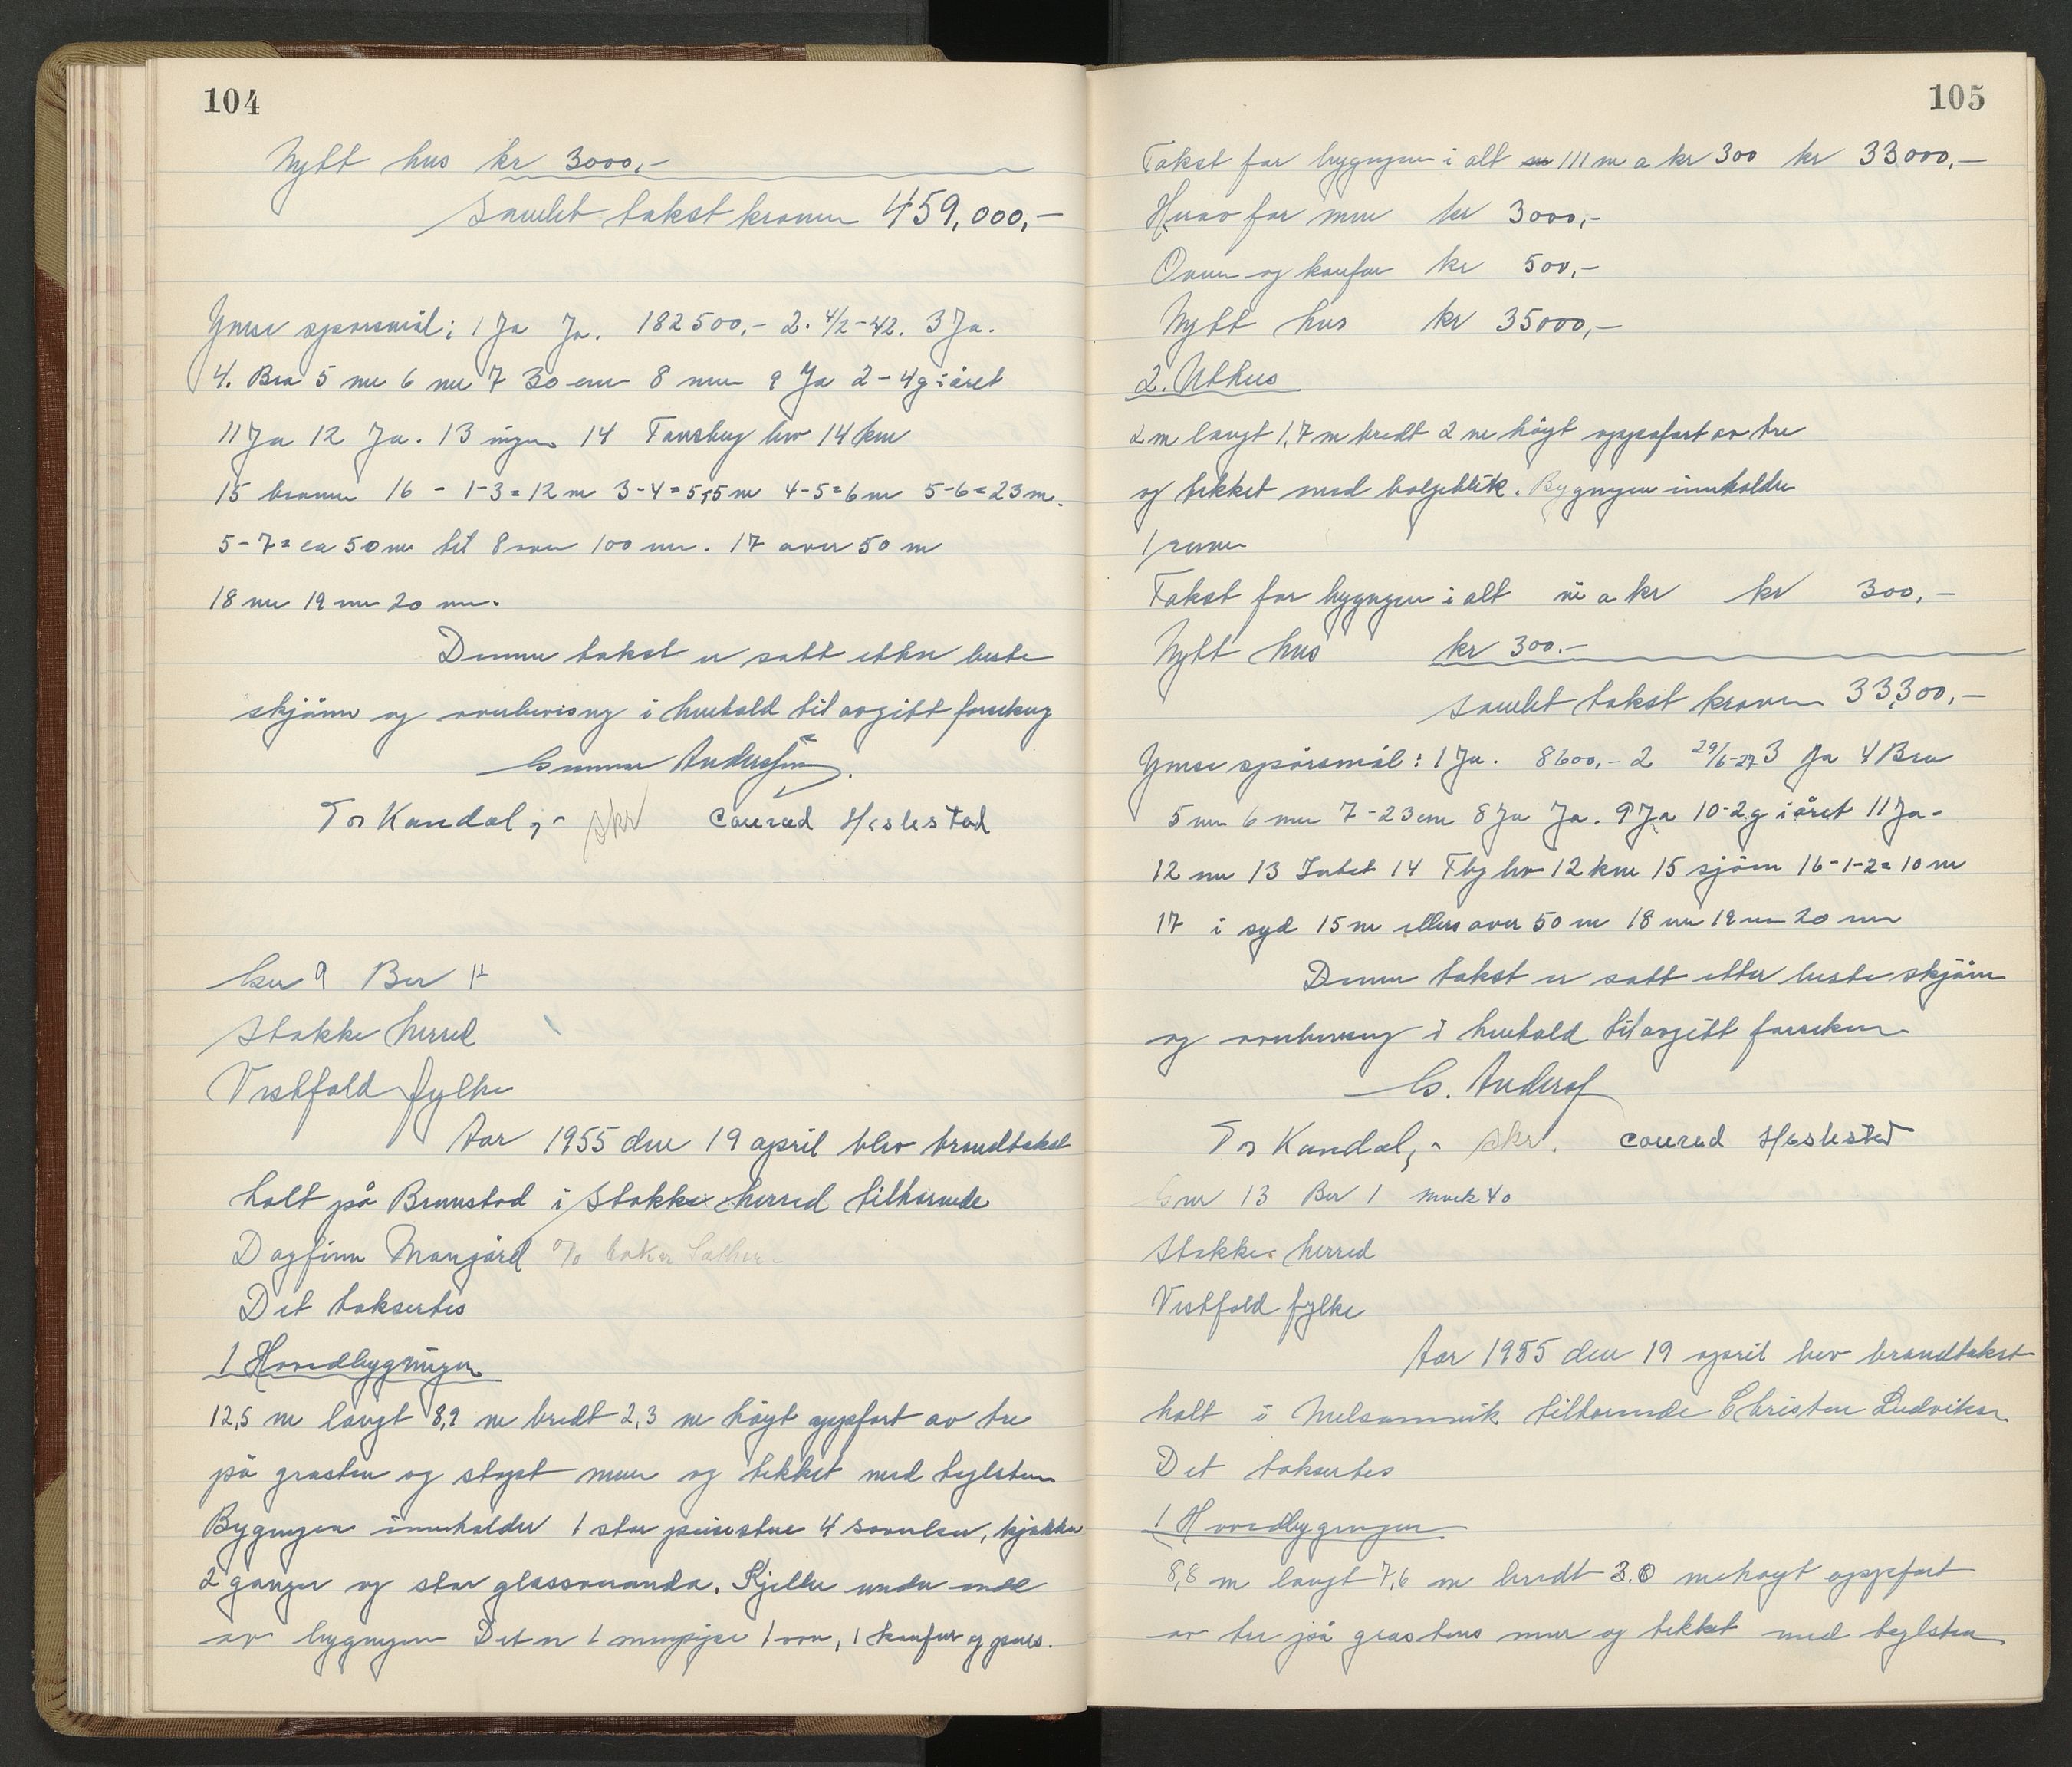 104
Nytt hus kr 3000,-
Samlet takst kroner 459,000,-
Ymse spørsmål: 1 Ja Ja. 182500,- 2. 4/2-42. 3 Ja.
4. Bra 5 nei 6 nei 7 30 cm 8 nei 9 Ja 2-4g i året
11 Ja 12 Ja. 13 ingen 14 Tønsberg brv 14 km
15 brønn 16 - 1-3=12 m 3-4=5,5 m 4-5=6 m 5-6=23 m.
5-7=ca 50 m til 8 over 100 m. 17 over 50 m
18 nei 19 nei 20 nei.
Denne takst er satt etter beste
skjönn og overbevisng i henhold til avgitt forsikring
Gunnar Anderssen
Tor Kandal,- skr Conrad Heslestad
Gnr 9 Bnr 14
Stokke herred
Vestfold fylke
Aar 1955 den 19 april blev brandtakst
holt på Brunstad i Stokke herred tilhørende
Dagfinn Mangård o/o baker Sæther
Det taksertes
1 Hovedbygningen
12,5 m langt 8,9 m bredt 2,3 m høyt oppført av tre
på gråsten og støpt mur og tekket med teglsten
Bygningen inneholder 1 stor peisestue 4 soverom, kjøkken
2 ganger og stor glassveranda. Kjeller under endel
av bygningen Det er 1 murpipe 1 ovn, 1 komfur og peis.
105
Takst for bygningen i alt 111 m a kr 300 kr 33.000,-
Herav for mur kr 3000,-
Ovner og komfur kr 500,-
Nytt hus kr 35000,-
2. Uthus
2 m langt 1,7 m bredt 2 m höyt oppført av tre
og tekket med bølgeblikk. Bygningen inneholder
1 rum
Takst for bygningen i alt m a kr kr 300,-
Nytt hus kr 300.-
Samlet takst kroner 33,300,-
Ymse spørsmål: 1 Ja. 8600,- 2 29/6-27 3 Ja 4 Bra
5 nei 6 nei 7-23 cm 8 Ja Ja. 9 Ja 10-2g i året 11 Ja-
12 nei 13 Intet 14 Tbg brv 12 km 15 sjöen 16-1-2=10 m
17 i syd 15 m ellers over 50 m 18 nei 19 nei 20 nei
Denne takst er satt etter beste skjönn
og overbevisng i henhold til avgitt forsikring
G. Anderss
Tor Kandal,- skr. Conrad Heslestad
Gnr 13 Bnr 1 mrk 40
Stokke herred
Vestfold fylke
Aar 1955 den 19 april blev brandtakst
holt i Melsomvik tilhørende Christen Ludviksen
Det taksertes
1 Hovedbygningen
8,8 m langt 7,6 m bredt 3.0 m høyt oppført
av tre på gråstens mur og tekket med teglsten